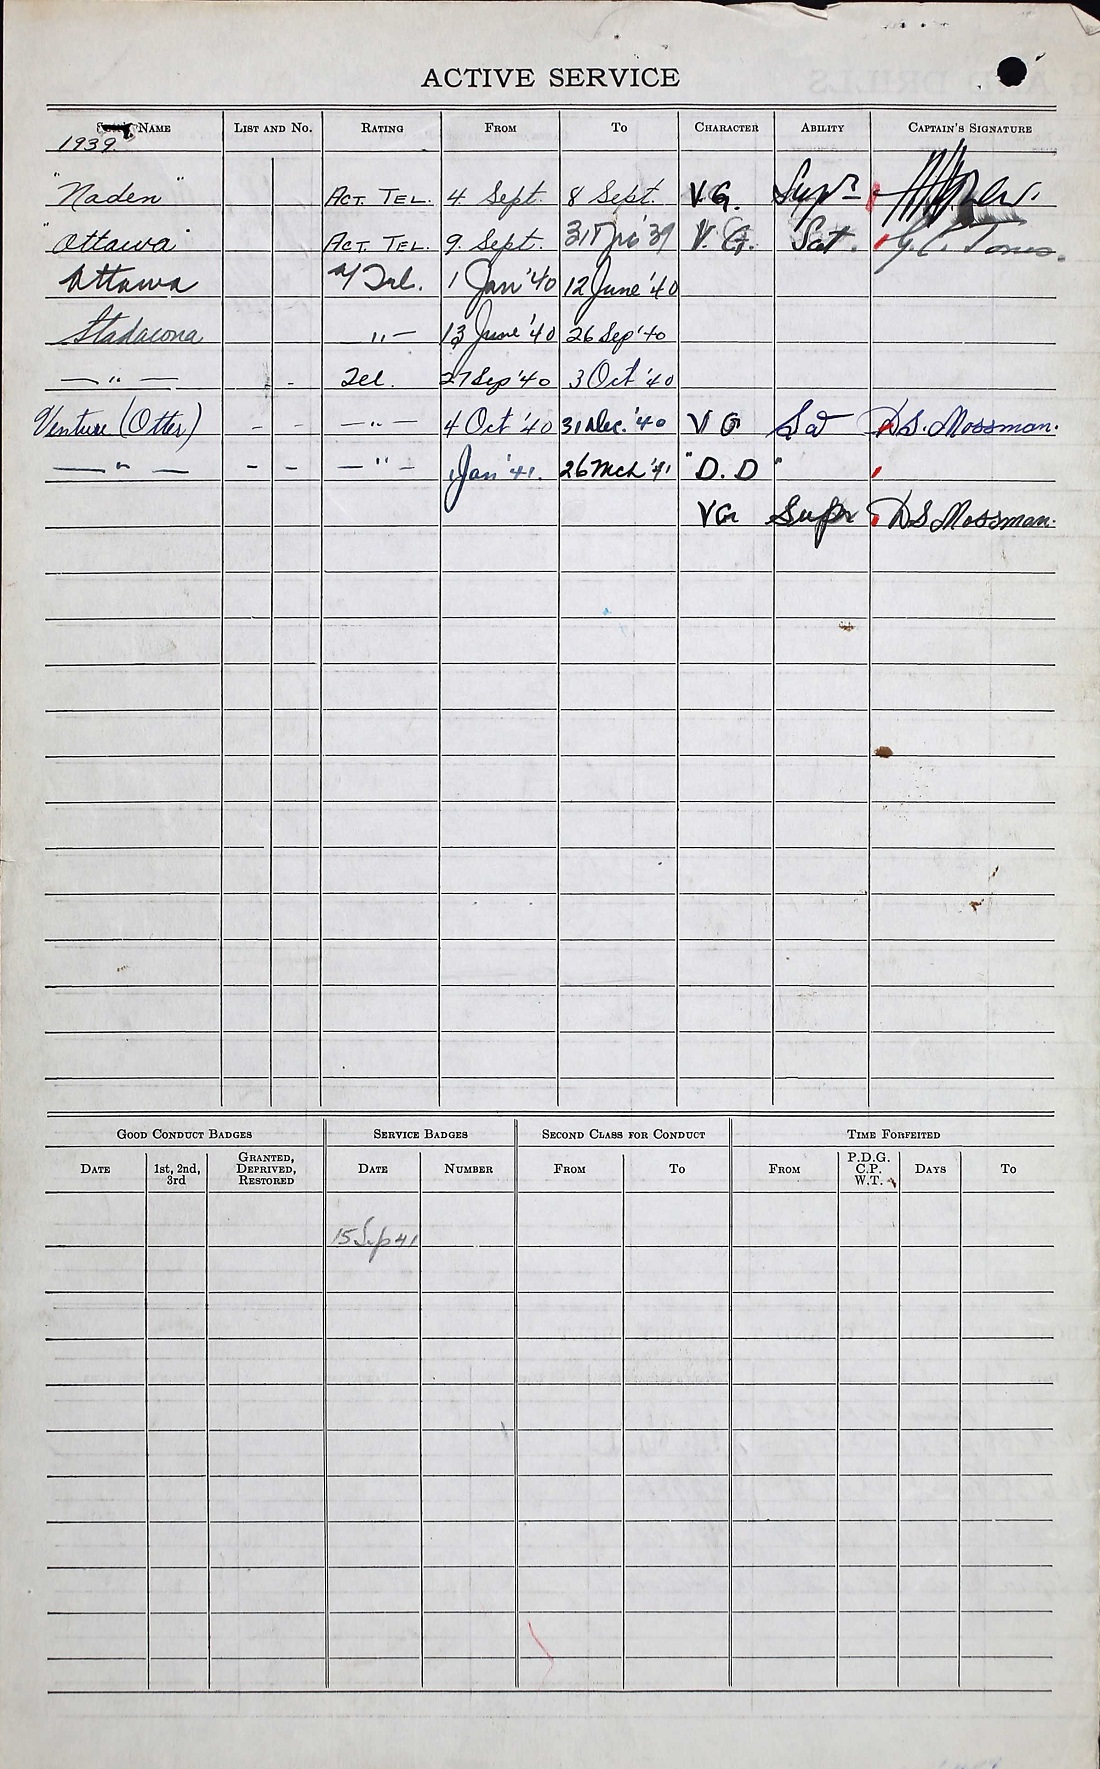 ACTIVE SERVICE
NAME LIST AND NO. RATING FROM TO CHARACTER ABILITY CAPTAIN'S SIGNATURE
1939
"Naden" ACT. TEL. 4 Sept. 8 Sept. V.G. Supr
"Ottawa" ACT. TEL. 9 Sept. 31 '39 V.G. Sat. G.C. Jones.
Ottawa A/Tel. 1 Jan '40 12 June '40
Stadacona " — 13 June '40 26 Sep '40
— " — - Tel. 27 Sep '40 3 Oct '40
Venture (Otter) - - — " — 4 Oct '40 31 Dec. '40 VG Sat D.S. Mossman.
— " — - - — " — Jan '41. 26 Mch '41 "D.D"
VG Supr D.S. Mossman.
GOOD CONDUCT BADGES SERVICE BADGES SECOND CLASS FOR CONDUCT TIME FORFEITED
DATE 1st, 2nd, 3rd GRANTED, DEPRIVED, RESTORED DATE NUMBER FROM TO FROM P.D.G. C.P. W.T. DAYS TO
15 Sep 41